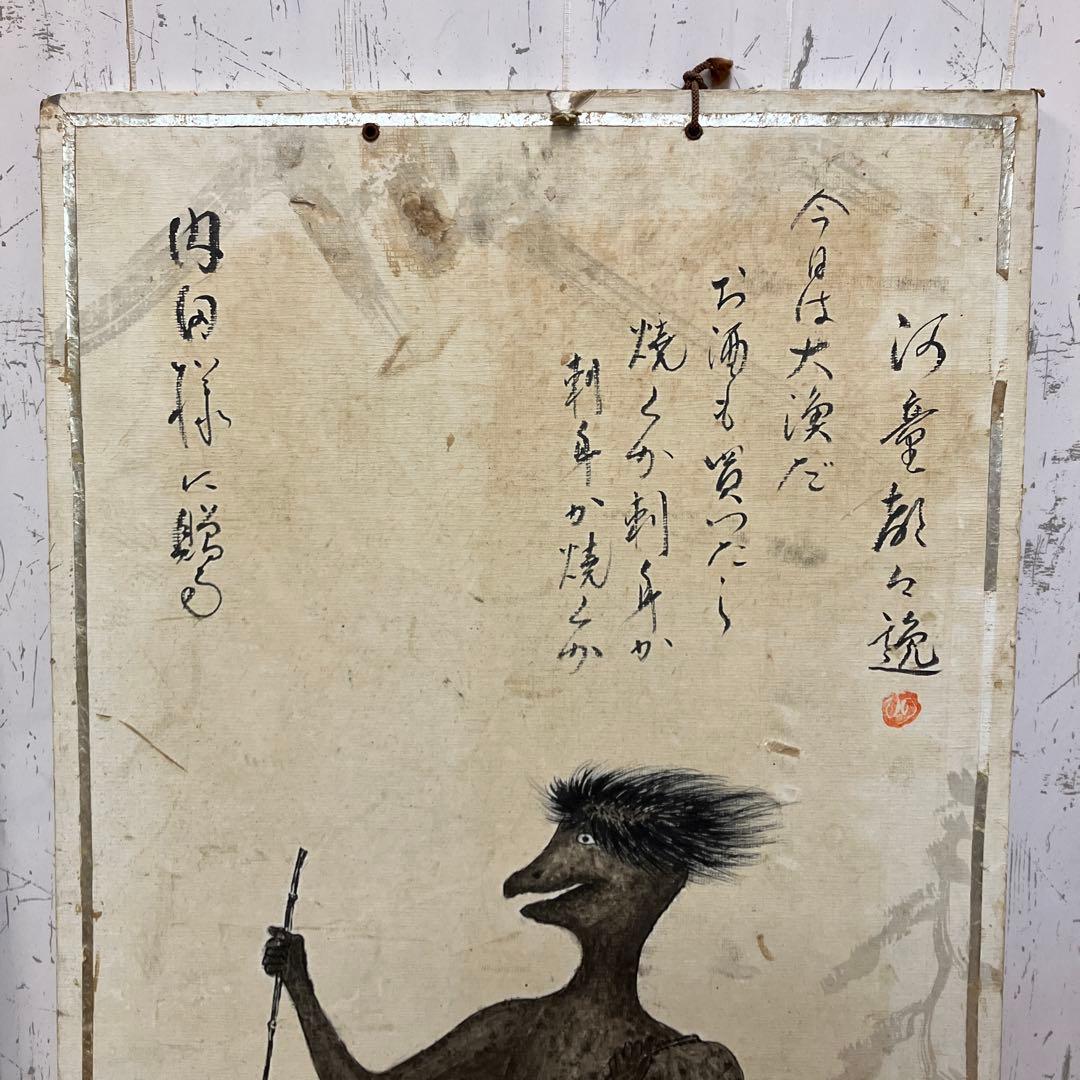 河童都々逸
今日は大漁だ
お酒も買つたら
焼くか刺身か
刺身か焼くか
内田様に贈る